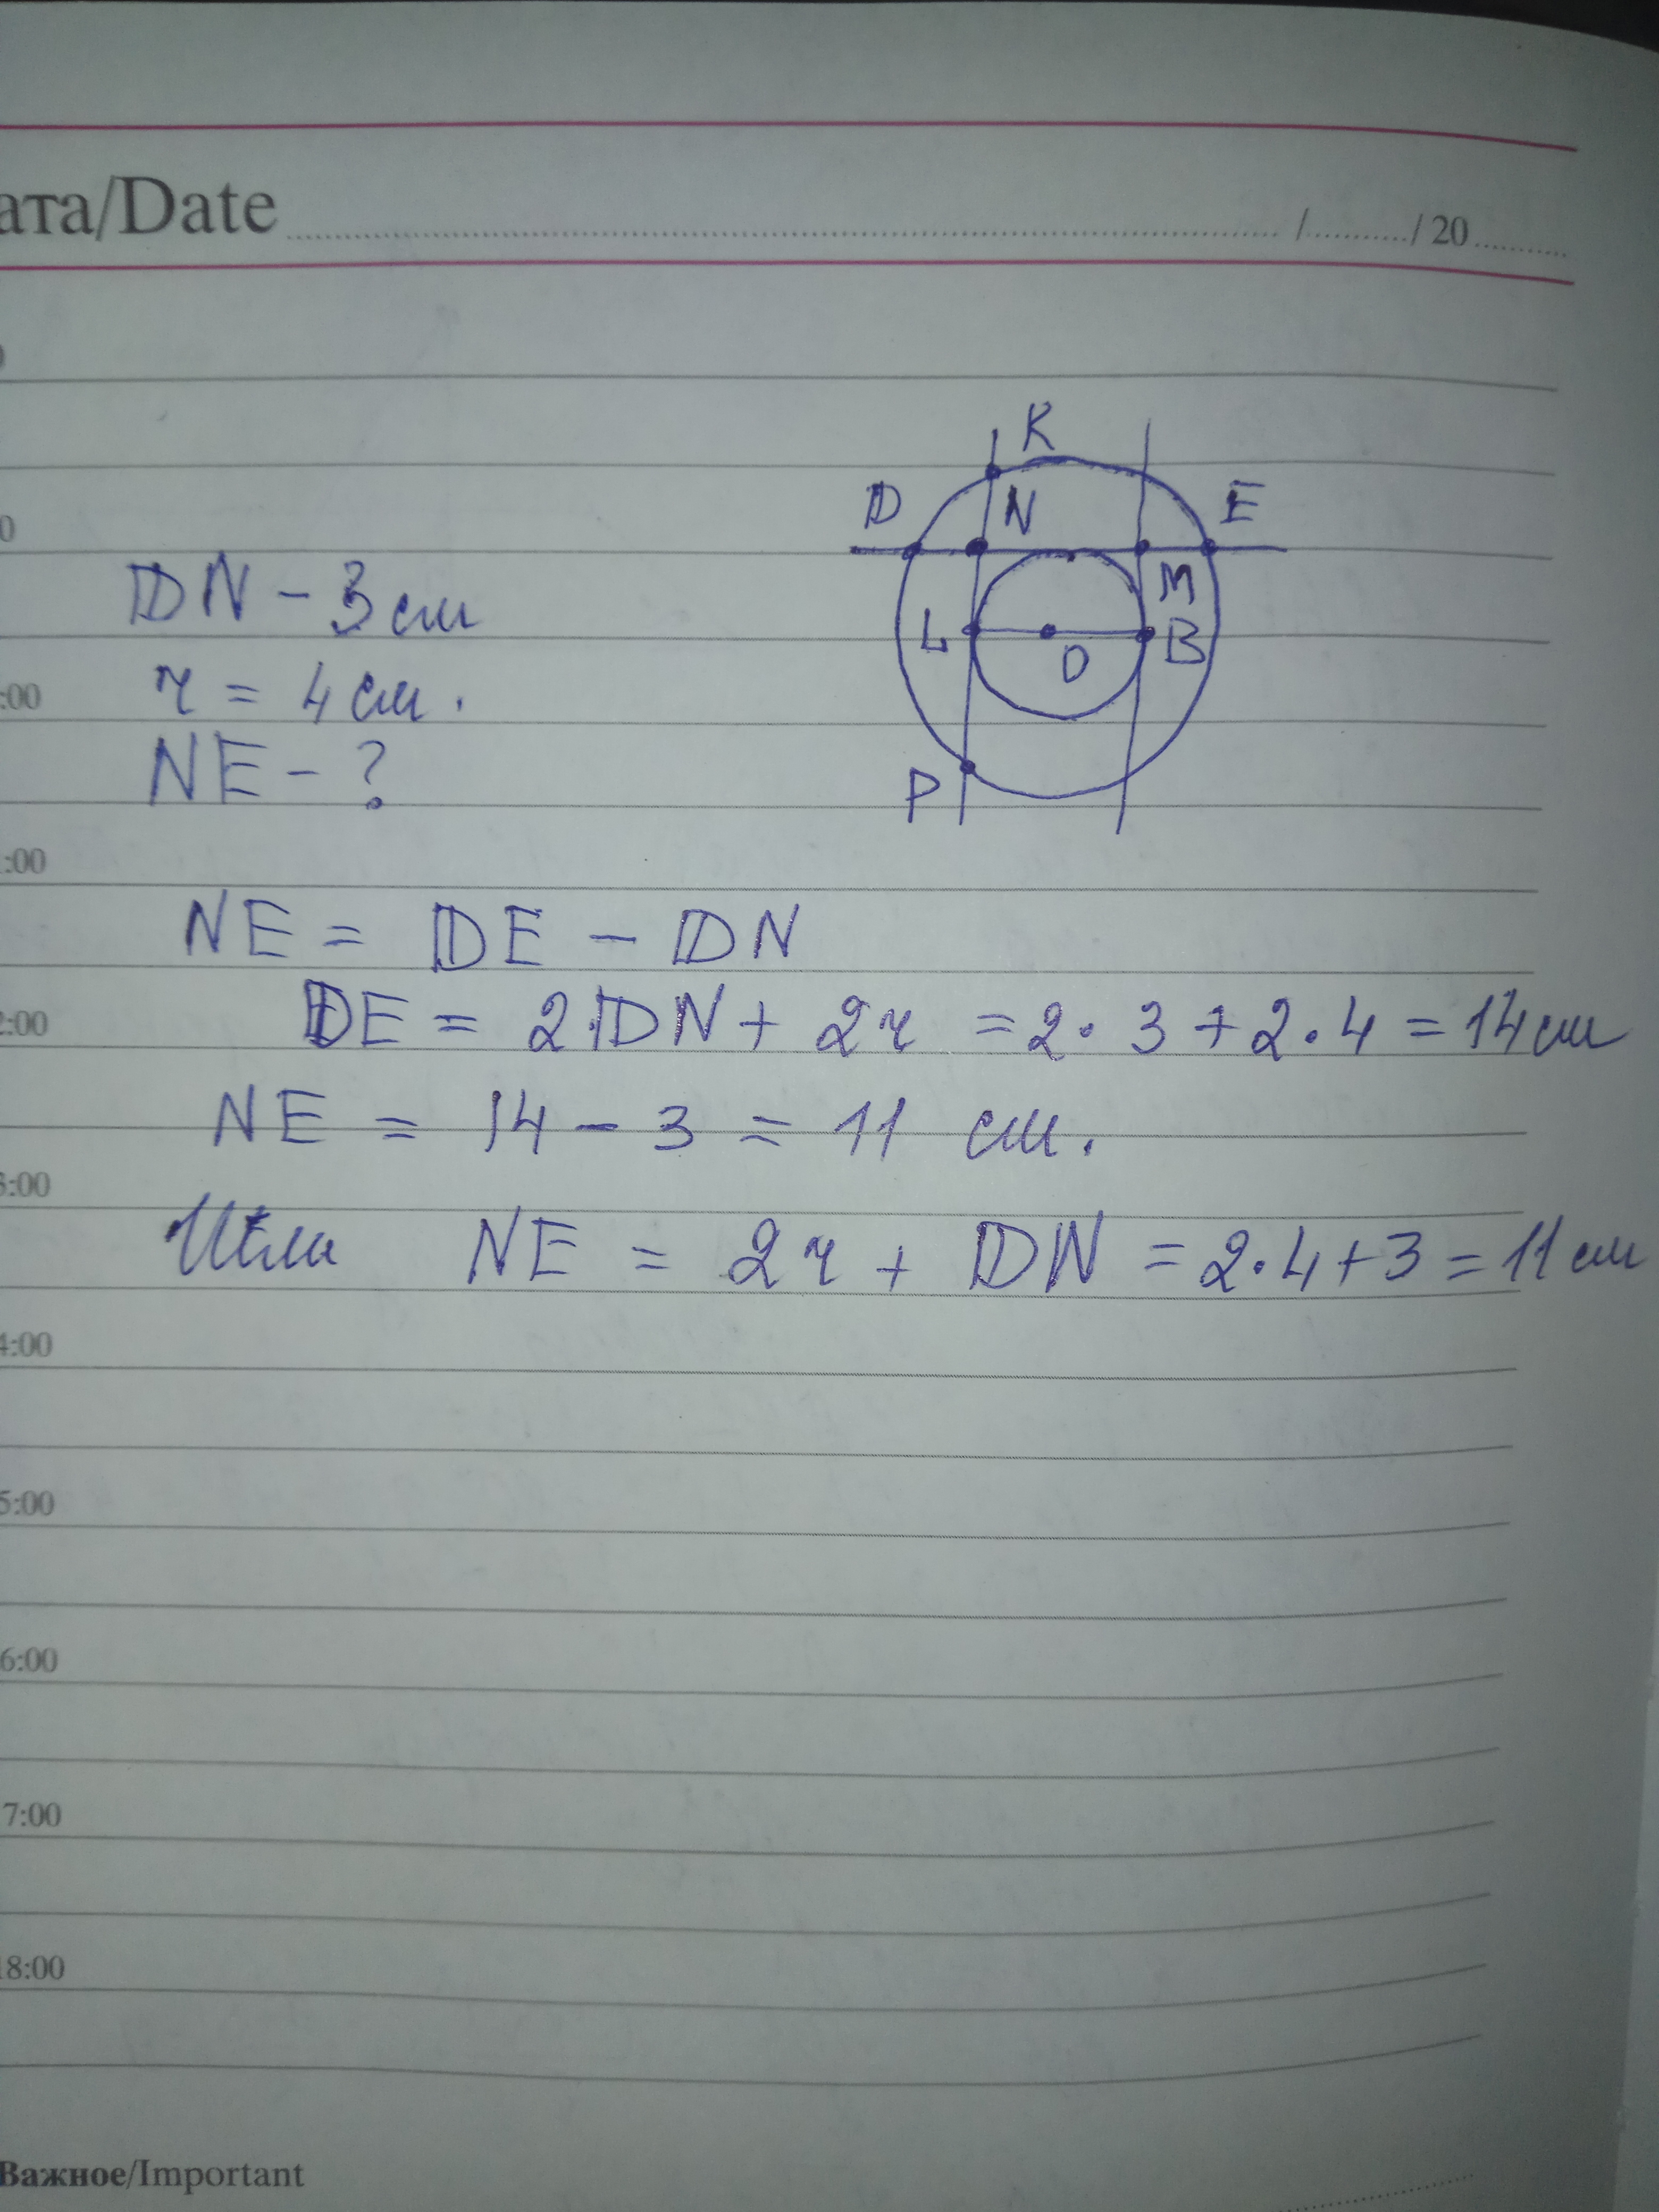 ата/Date / / 20
K
D N E
M
L O B
P
DN - 3 см
r = 4 см.
NE - ?
:00
1:00
NE = DE - DN
2:00
DE = 2·DN + 2r = 2·3 + 2·4 = 14 см
NE = 14 - 3 = 11 см.
3:00
Или NE = 2r + DN = 2·4+3 = 11 см
4:00
5:00
6:00
7:00
18:00
Важное/Important